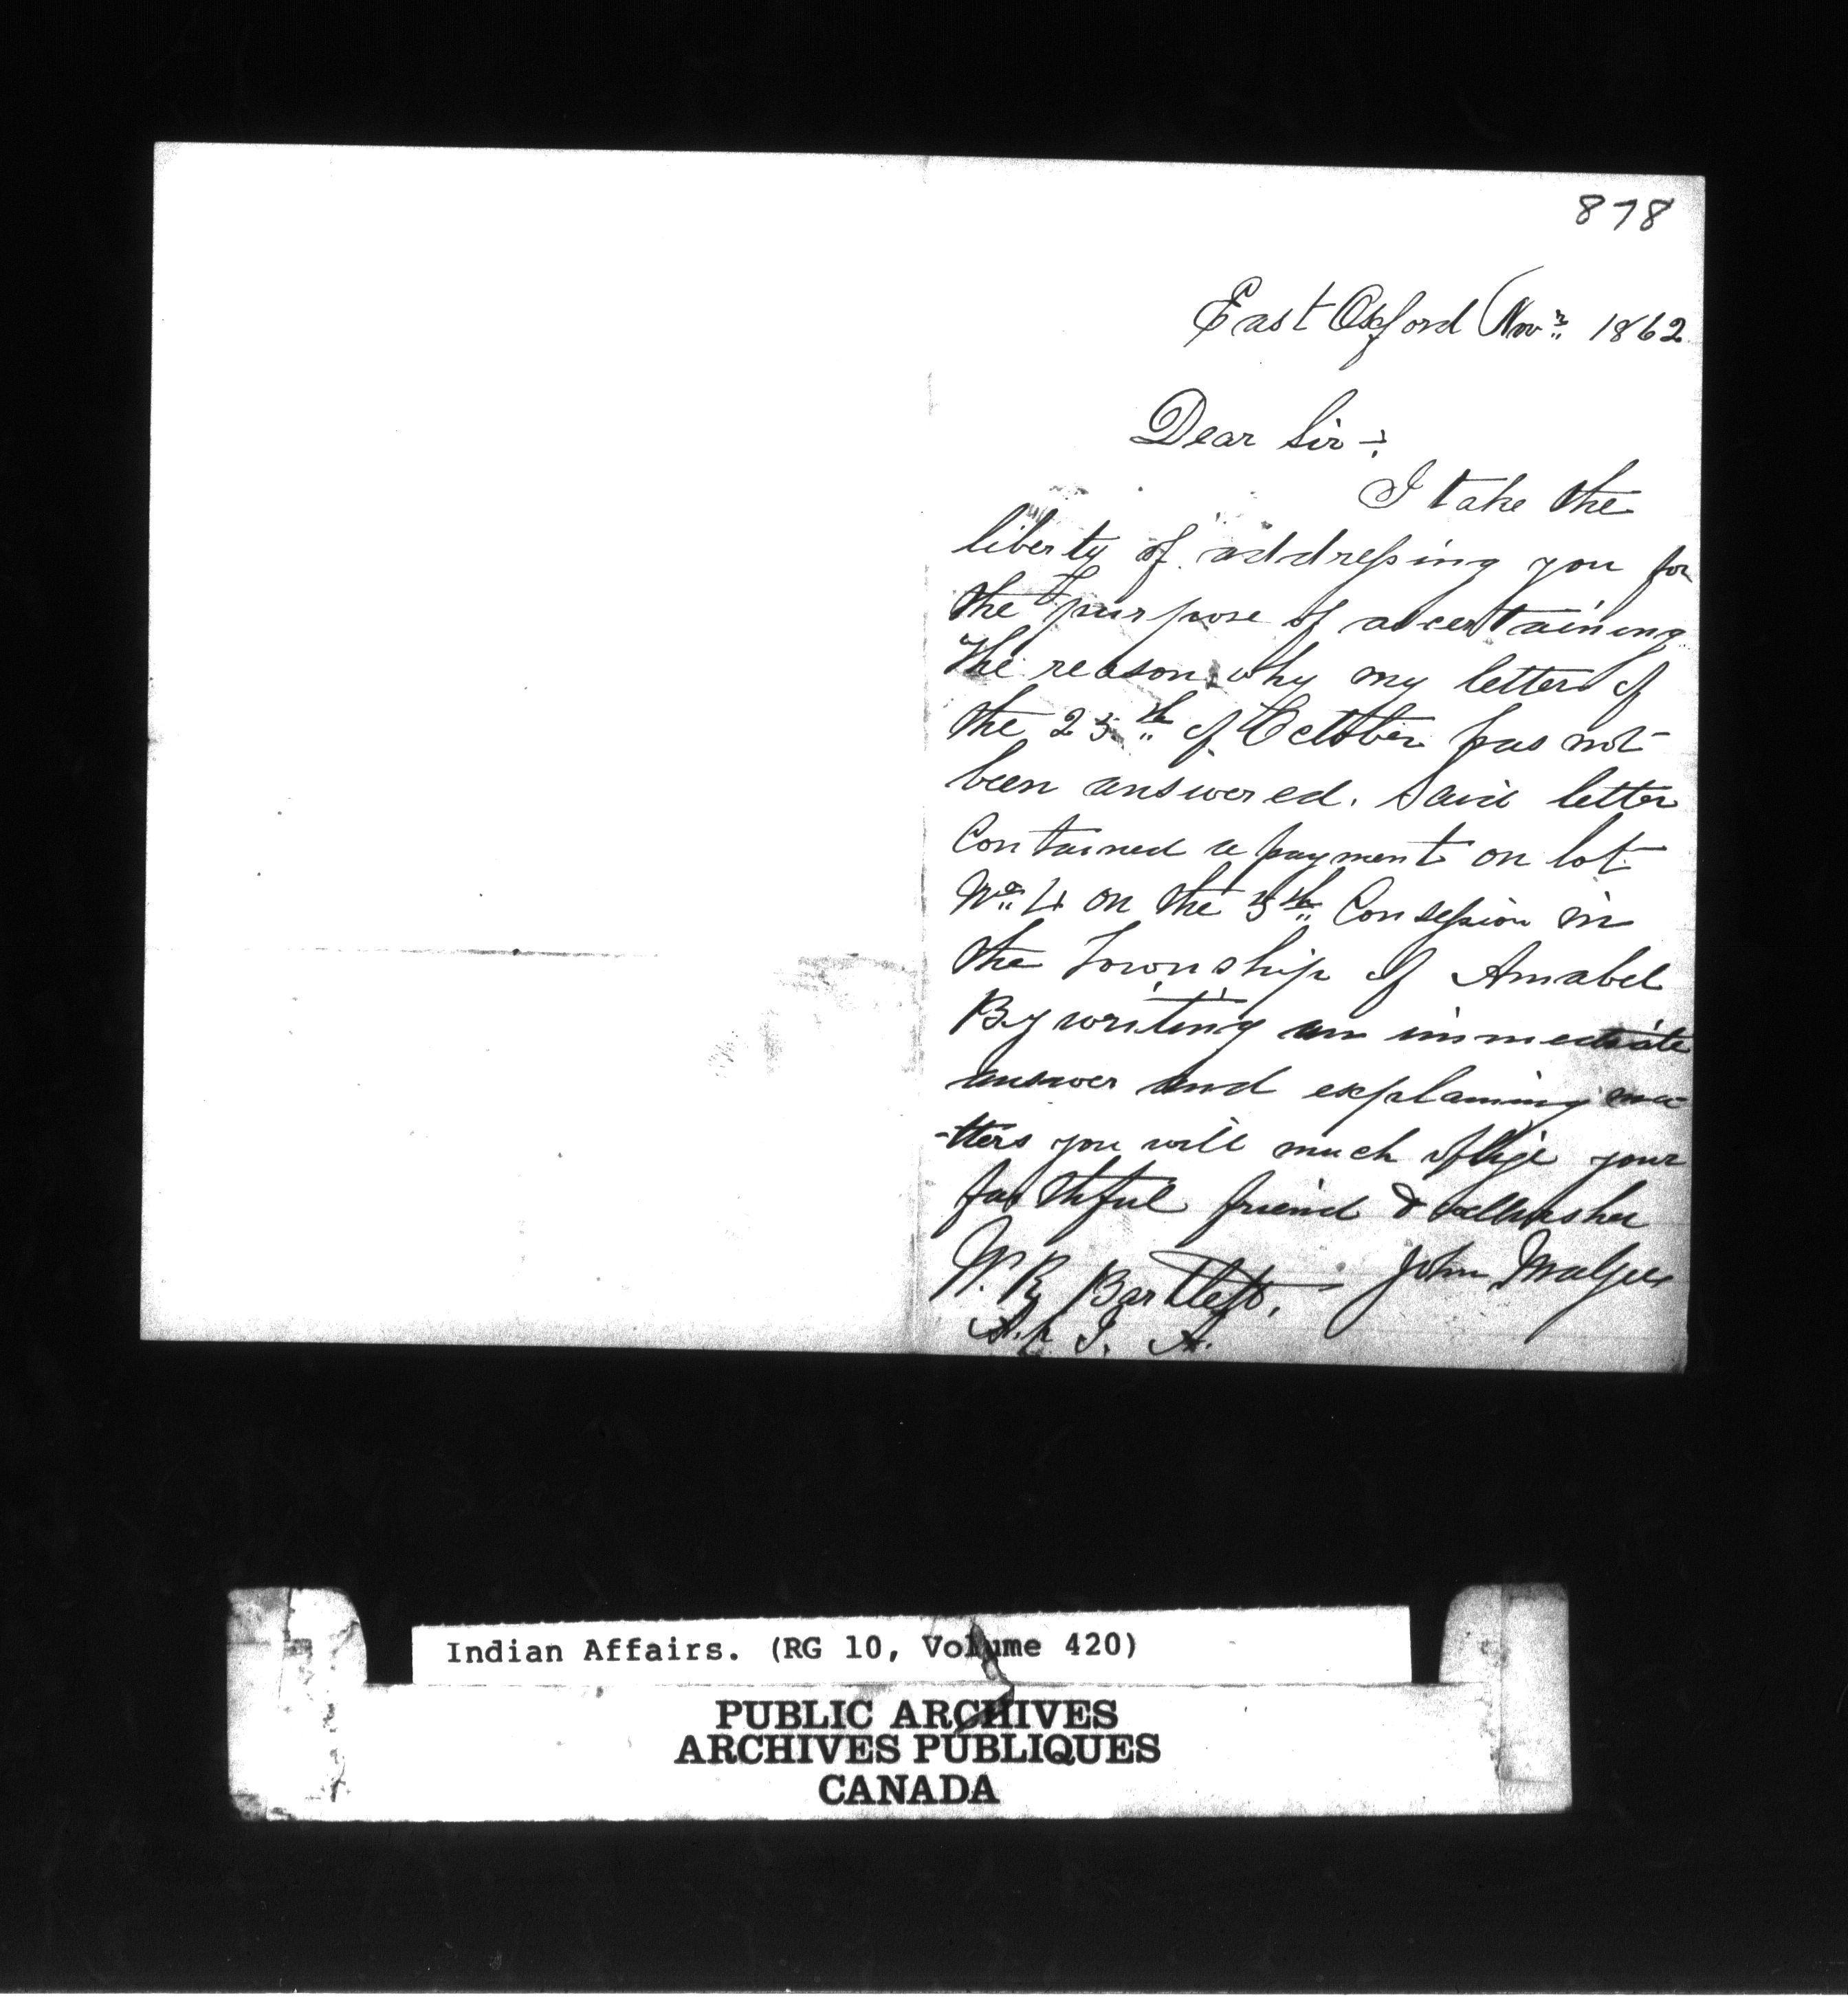 878
East Oxford Novr 1862
Dear Sir -:
I take the
liberty of addressing you for
the purpose of ascertaining
the reason why my letter of
the 25th of October has not
been answered. Said letter
Contained a payment on lot
No 4 on the 5th Consession in
the Township of Amabel
By writing an immediate
answer and explaining ma-
-tters you will much oblige your
faithful friend & wellwisher
John
W. R. Bartlett,
I. A.
Indian Affairs. (RG 10, Volume 420)
PUBLIC ARCHIVES
ARCHIVES PUBLIQUES
CANADA